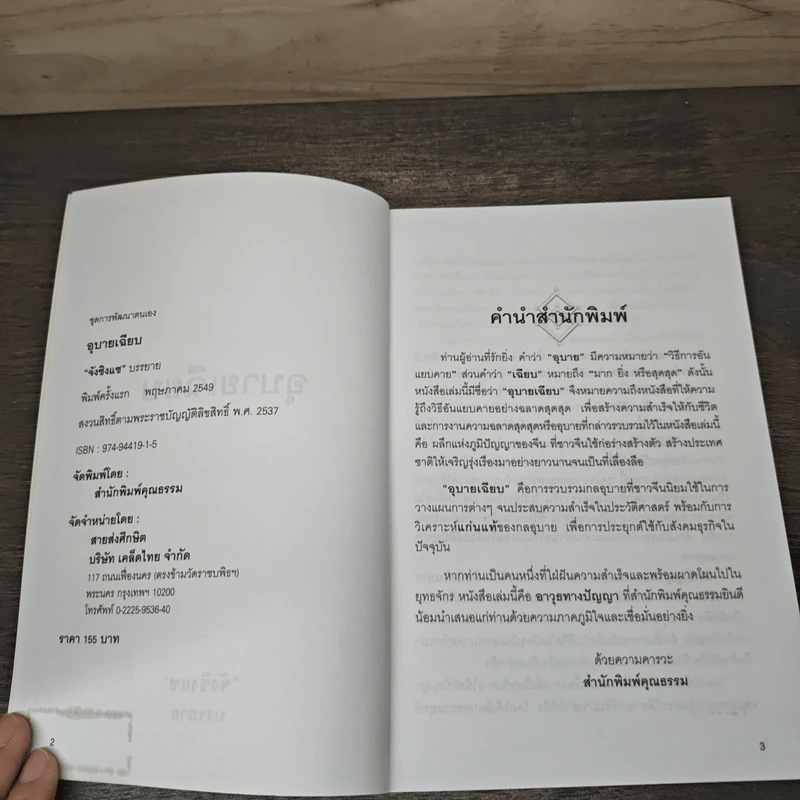 ชุดการพัฒนาตนเอง
อุบายเฉียบ
"จังซิงแซ" บรรยาย
พิมพ์ครั้งแรก พฤษภาคม 2549
สงวนสิทธิ์ตามพระราชบัญญัติลิขสิทธิ์ พ.ศ. 2537
ISBN : 974-94419-1-5
จัดพิมพ์โดย :
สำนักพิมพ์คุณธรรม
จัดจำหน่ายโดย :
สายส่งศึกษิต
บริษัท เคล็ดไทย จำกัด
117 ถนนเฟื่องนคร (ตรงข้ามวัดราชบพิธฯ)
พระนคร กรุงเทพฯ 10200
โทรศัพท์ 0-2225-9536-40
ราคา 155 บาท
2
คำนำสำนักพิมพ์
ท่านผู้อ่านที่รักยิ่ง คำว่า "อุบาย" มีความหมายว่า "วิธีการอัน
แยบคาย" ส่วนคำว่า "เฉียบ" หมายถึง "มาก ยิ่ง หรือสุดสุด" ดังนั้น
หนังสือเล่มนี้มีชื่อว่า "อุบายเฉียบ" จึงหมายความถึงหนังสือที่ให้ความ
รู้ถึงวิธีอันแยบคายอย่างฉลาดสุดสุด เพื่อสร้างความสำเร็จให้กับชีวิต
และการงานความฉลาดสุดสุดหรืออุบายที่กล่าวรวบรวมไว้ในหนังสือเล่มนี้
คือ ผลึกแห่งภูมิปัญญาของจีน ที่ชาวจีนใช้ก่อร่างสร้างตัว สร้างประเทศ
ชาติให้เจริญรุ่งเรืองมาอย่างยาวนานจนเป็นที่เลื่องลือ
"อุบายเฉียบ" คือการรวบรวมกลอุบายที่ชาวจีนนิยมใช้ในการ
วางแผนการต่างๆ จนประสบความสำเร็จในประวัติศาสตร์ พร้อมกับการ
วิเคราะห์แก่นแท้ของกลอุบาย เพื่อการประยุกต์ใช้กับสังคมธุรกิจใน
ปัจจุบัน
หากท่านเป็นคนหนึ่งที่ใฝ่ฝันความสำเร็จและพร้อมผาดโผนไปใน
ยุทธจักร หนังสือเล่มนี้คือ อาวุธทางปัญญา ที่สำนักพิมพ์คุณธรรมยินดี
น้อมนำเสนอแก่ท่านด้วยความภาคภูมิใจและเชื่อมั่นอย่างยิ่ง
ด้วยความคารวะ
สำนักพิมพ์คุณธรรม
3